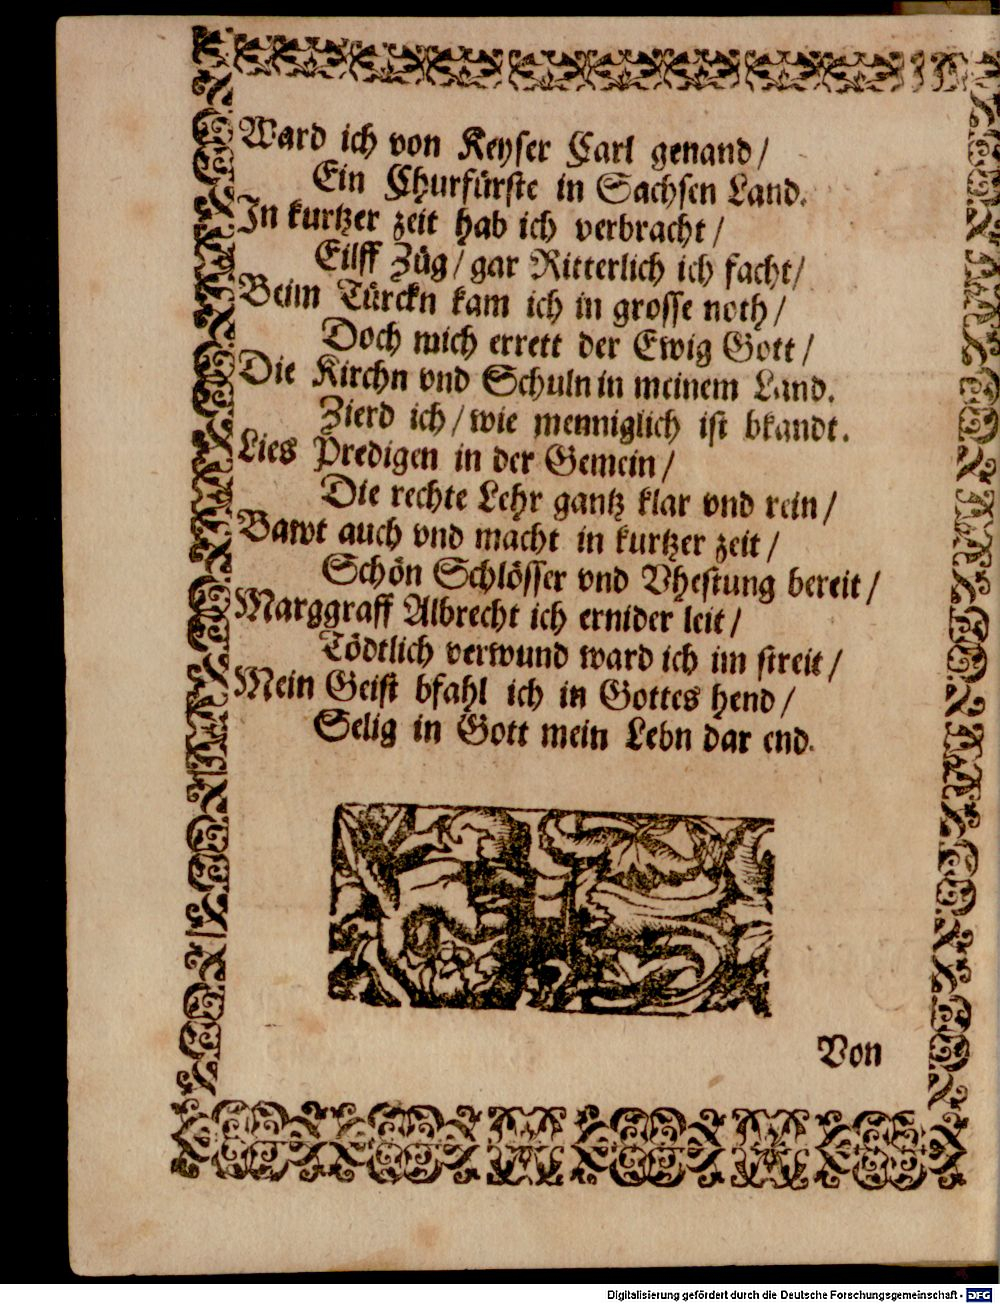 Ward ich von Keyser Carl genand/
Ein Churfürste in Sachsen Land.
In kurtzer zeit hab ich verbracht/
Eilff Züg/ gar Ritterlich ich facht/
Beim Türckn kam ich in grosse noth/
Doch mich errett der Ewig Gott/
Die Kirchn vnd Schuln in meinem Land.
Zierd ich/ wie menniglich ist bkandt.
Lies Predigen in der Gemein/
Die rechte Lehr gantz klar vnd rein/
Bawt auch vnd macht in kurtzer zeit/
Schön Schlösser vnd Vhestung bereit/
Marggraff Albrecht ich ernider leit/
Tödtlich verwund ward ich im streit/
Mein Geist bfahl ich in Gottes hend/
Selig in Gott mein Lebn dar end.
Von
Digitalisierung gefördert durch die Deutsche Forschungsgemeinschaft - DFG